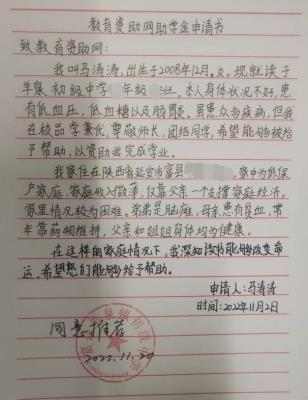 教育资助网助学金申请书
致教育资助网：
我叫马涛涛，出生于2008年12月，女，现就读于
羊泉初级中学 年级 班。本人身体状况不好，患
有低血压，低血糖以及肠胃炎。虽患众多疾病，但我
在校品学兼优，尊敬师长，团结同学，希望能够被给
于帮助，以资助我完成学业。
我家住在陕西省延安市富县 家中为低保
户家庭，家庭收入微薄，仅靠父亲一个支撑家庭经济，
家里情况较为困难，弟弟是脑瘫，母亲患有贫血，常
年靠药物维持，父亲和姐姐身体均为健康。
在这样的家庭情况下，我深知读书能够改变命
运，希望您们能够给予帮助。
申请人：马涛涛
时间：2022年11月2日
同意推荐
2022.11.20